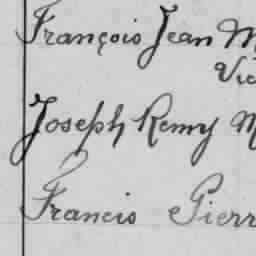 François Jean M
Vic
Joseph Remy M
Francis Pierr